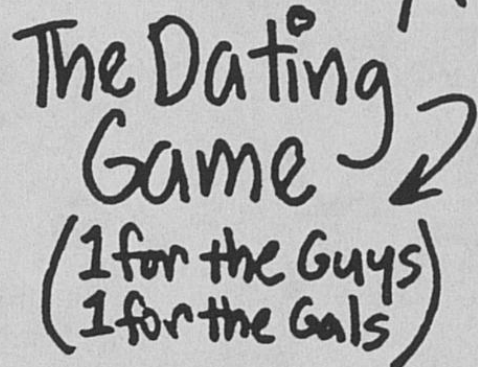 The Dating
Game
(1 for the Guys
1 for the Gals)